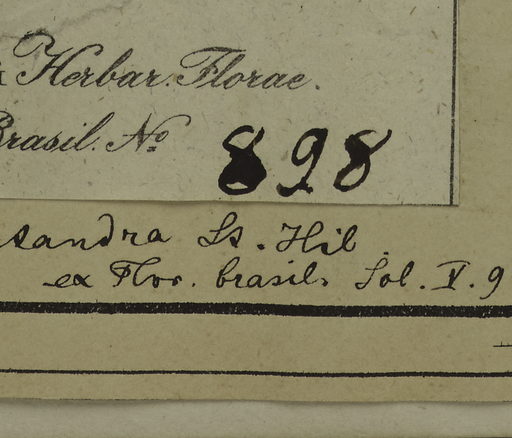 Herbar. Florae.
Brasil. No 898
sandra St. Hil.
ex Flor. brasil. Sol. V. 9